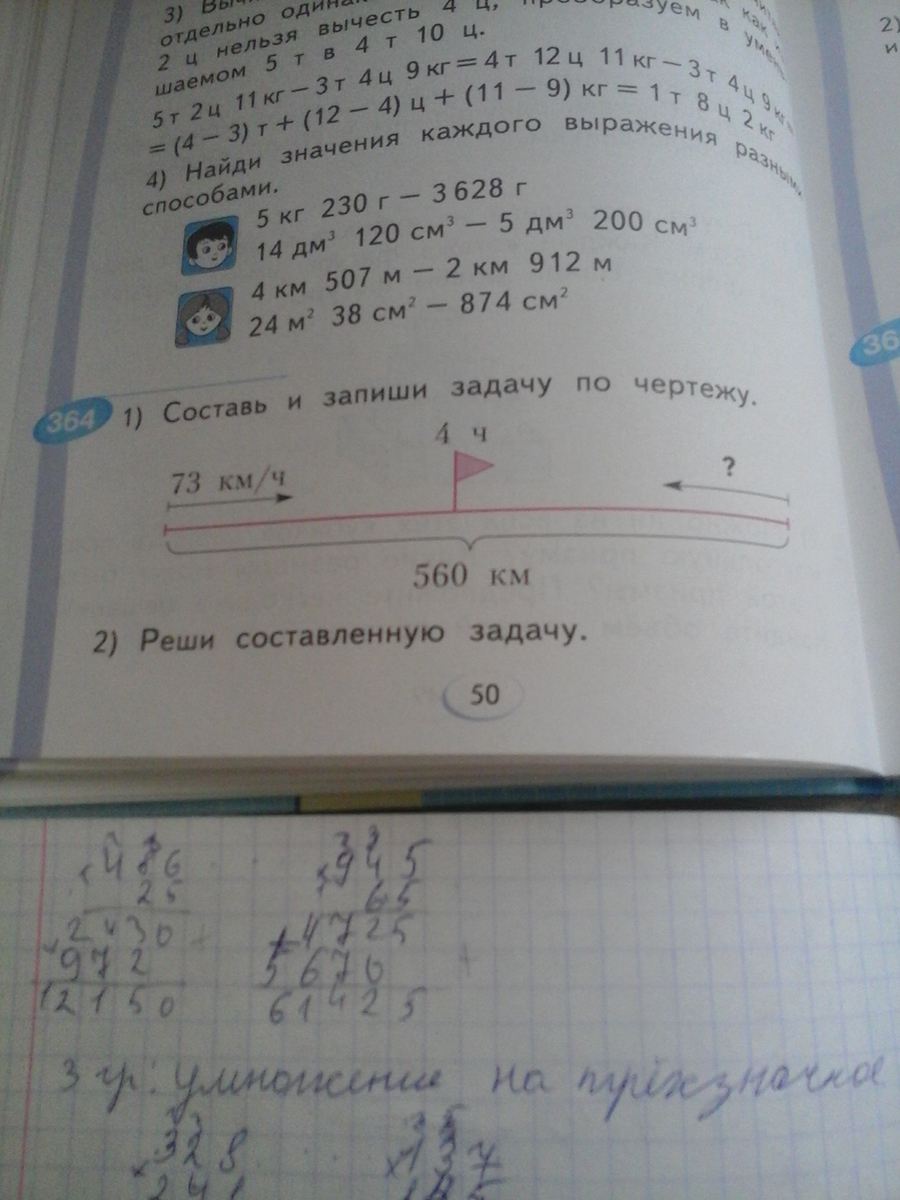 3)
отдельно
2 ц нельзя вычесть 4 ц, преобразуем в
шаемом 5 т в 4 т 10 ц.
5 т 2 ц 11 кг – 3 т 4 ц 9 кг = 4 т 12 ц 11 кг – 3 т 4 ц 9 кг =
= (4 – 3) т + (12 – 4) ц + (11 – 9) кг = 1 т 8 ц 2 кг
4) Найди значения каждого выражения разными
способами.
5 кг 230 г – 3 628 г
14 дм³ 120 см³ – 5 дм³ 200 см³
4 км 507 м – 2 км 912 м
24 м² 38 см² – 874 см²
364 1) Составь и запиши задачу по чертежу.
4 ч
73 км/ч
?
560 км
2) Реши составленную задачу.
50
2)
и
36
× 486
25
2430
972
12150
× 945
65
+ 4725
5670
61425
3 гр: умножение на трёхзначное
× 328
241
× 137